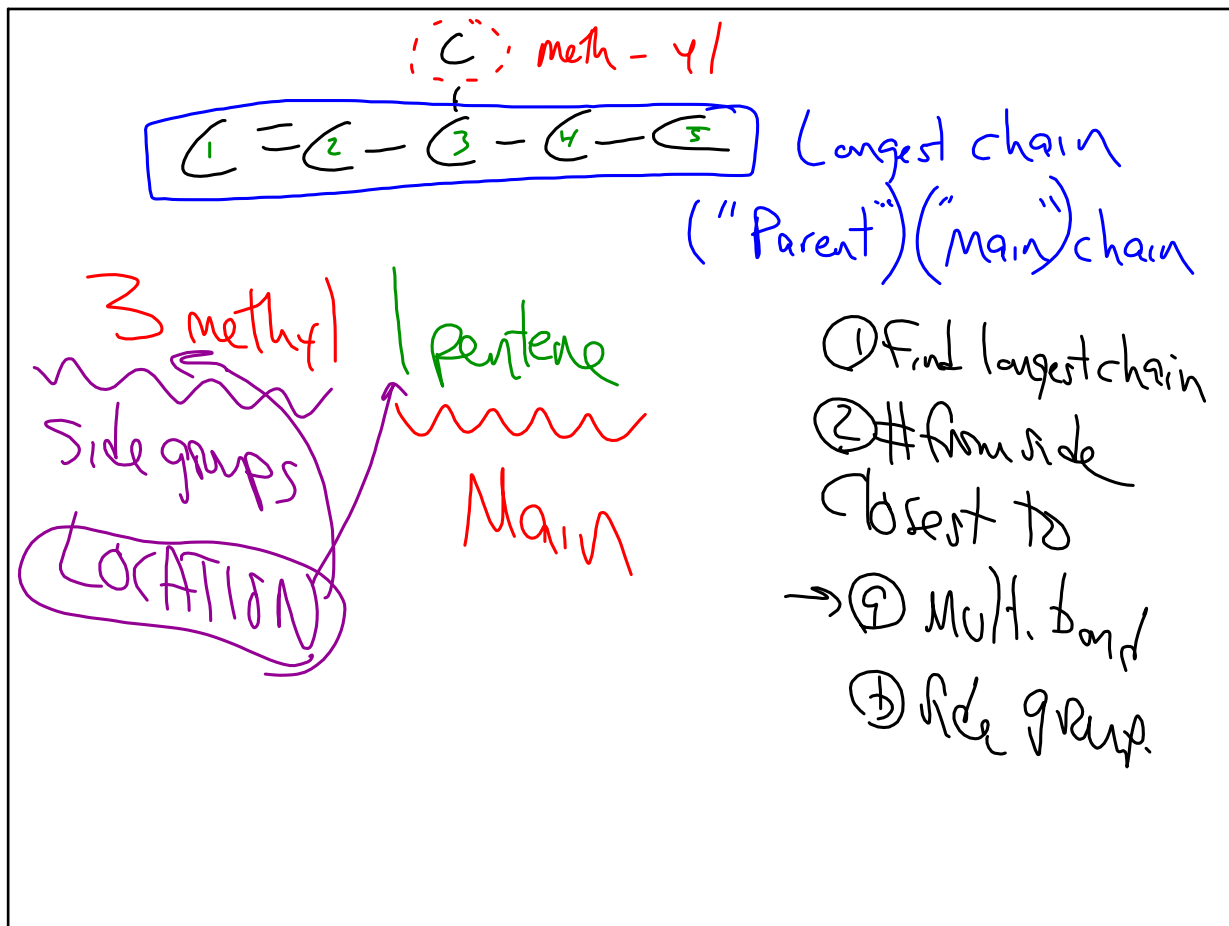 C meth-yl
C=C-C-C-C
1 2 3 4 5
Longest chain
("Parent") ("Main") chain
3 methyl 1 pentene
side groups
Main
LOCATION
① Find longest chain
② # from side
closest to
→ ⓐ Mult. bond
ⓑ side group.